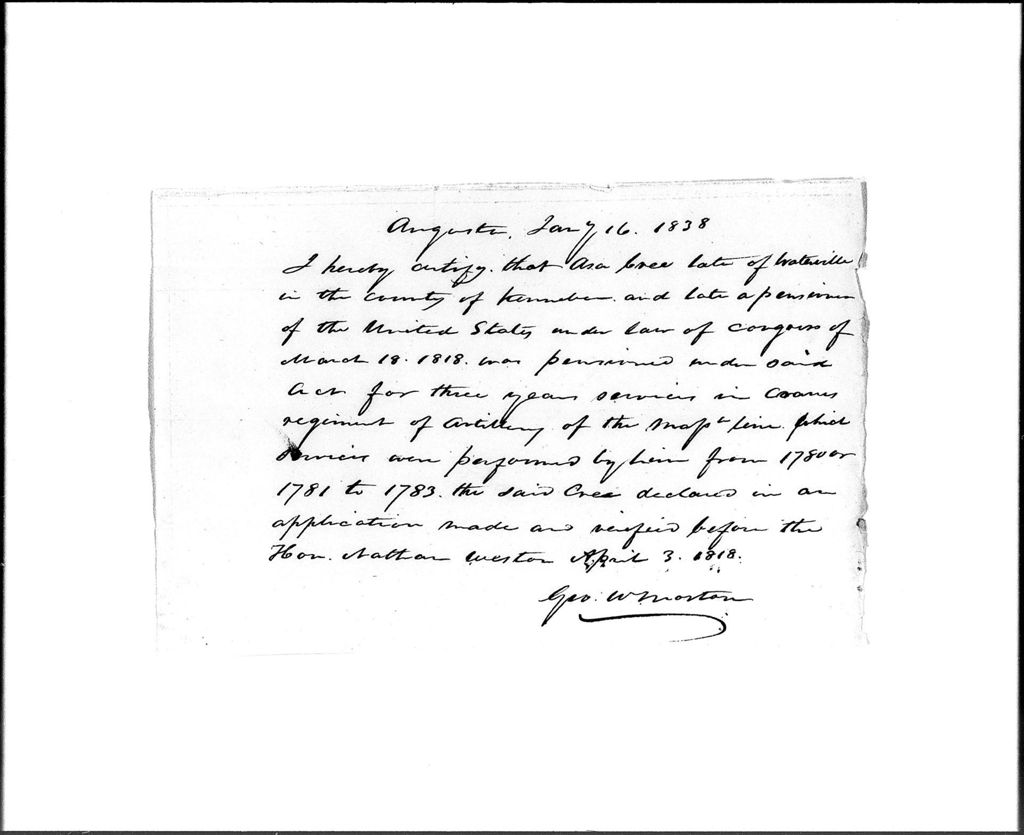 Augusta, Jany 16. 1838
I hereby certify. that Asa Cree late of Waterville
in the County of Kennebec. and late a pensioner
of the United States under law of Congress of
March 18. 1818. was pensioned under said
Act for three years services in Cranes
regiment of Artillery of the Masst line. Which
services were performed by him from 1780 or
1781 to 1783. the said Cree declared in an
application made and verified before the
Hon. Nathan Weston April 3. 1818.
Geo. W Morton